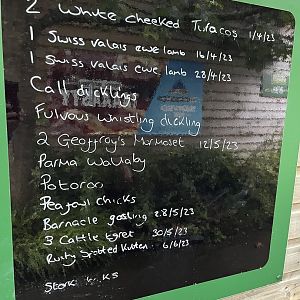 2 White cheeked Turacos 1/4/23
1 Swiss valais ewe lamb 16/4/23
1 Swiss valais ewe lamb 28/4/23
Call ducklings
Fulvous whistling duckling
2 Geoffroy's Marmoset 12/5/23
Parma wallaby
Potoroo
Peafowl chicks
Barnacle gosling 28/5/23
3 Cattle Egret 30/5/23
Rusty Spotted Kitten 6/6/23
Stork